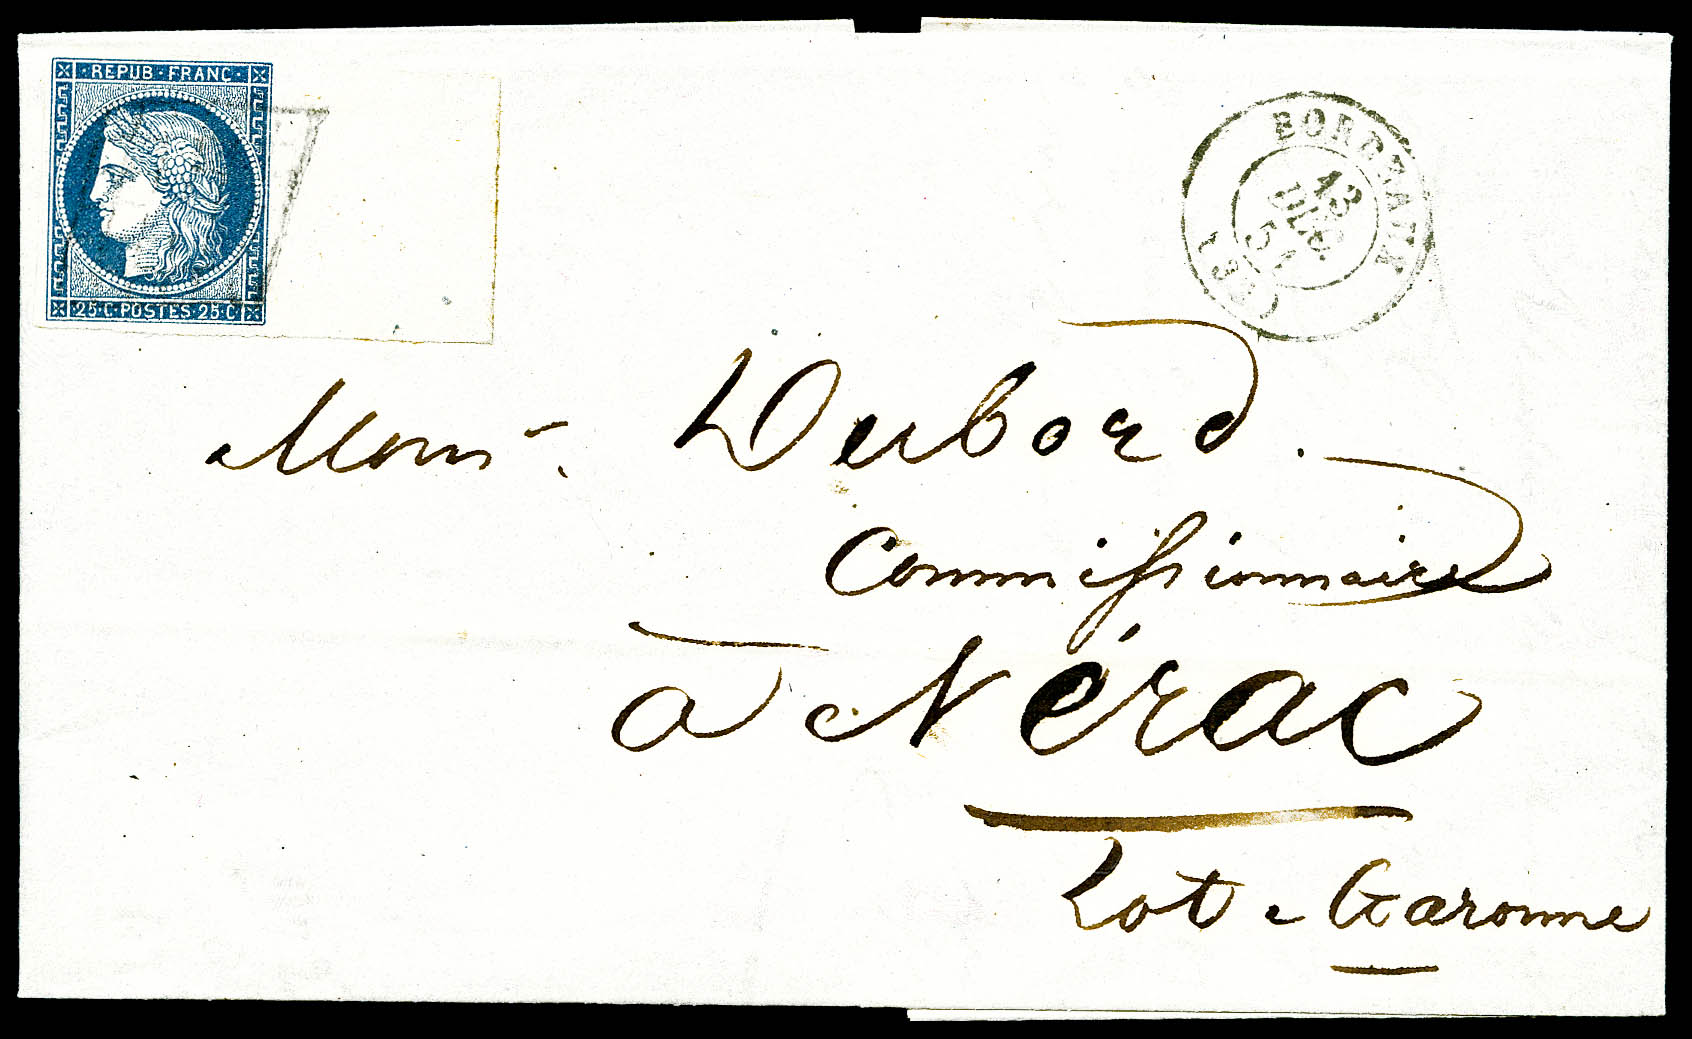 REPUB · FRANC ·
25 · C · POSTES · 25 · C
BORDEAUX
13
DEC.
51
(32)
Mons-r. Dubord.
Commissionnaire
à Nérac
Lot-Garonne